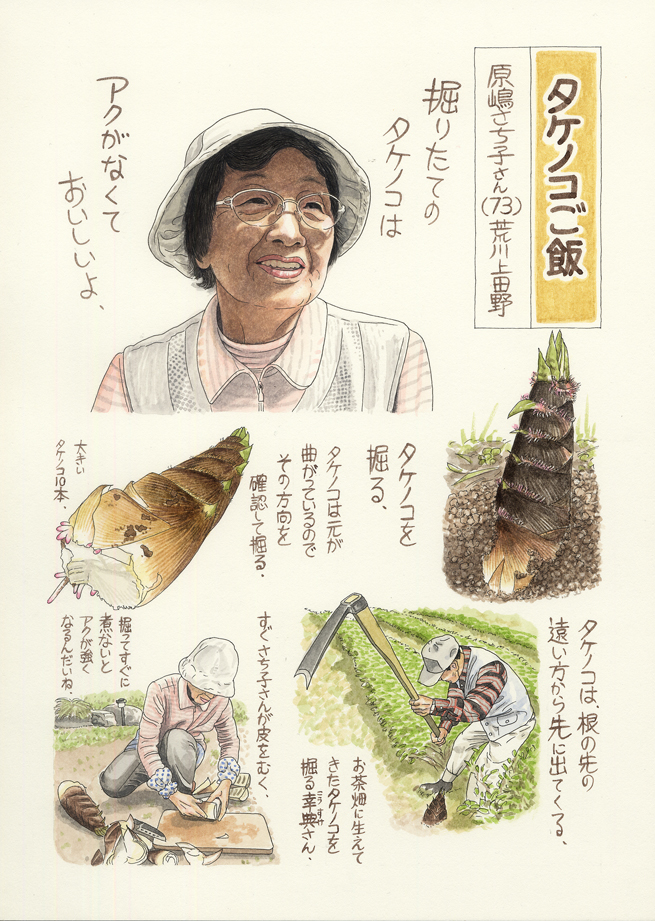 タケノコご飯
原嶋さち子さん(73)荒川上田野
掘りたての
タケノコは
アクがなくて
おいしいよ、
タケノコを
掘る、
タケノコは元が
曲がっているので
その方向を
確認して掘る.
大きい
タケノコ10本.
タケノコは、根の先の
遠い方から先に出てくる、
お茶畑に生えて
きたタケノコを
掘る幸典さん.
こうすけ
すぐさち子さんが皮をむく、
掘ってすぐに
煮ないと
アクが強く
なるんだいね.